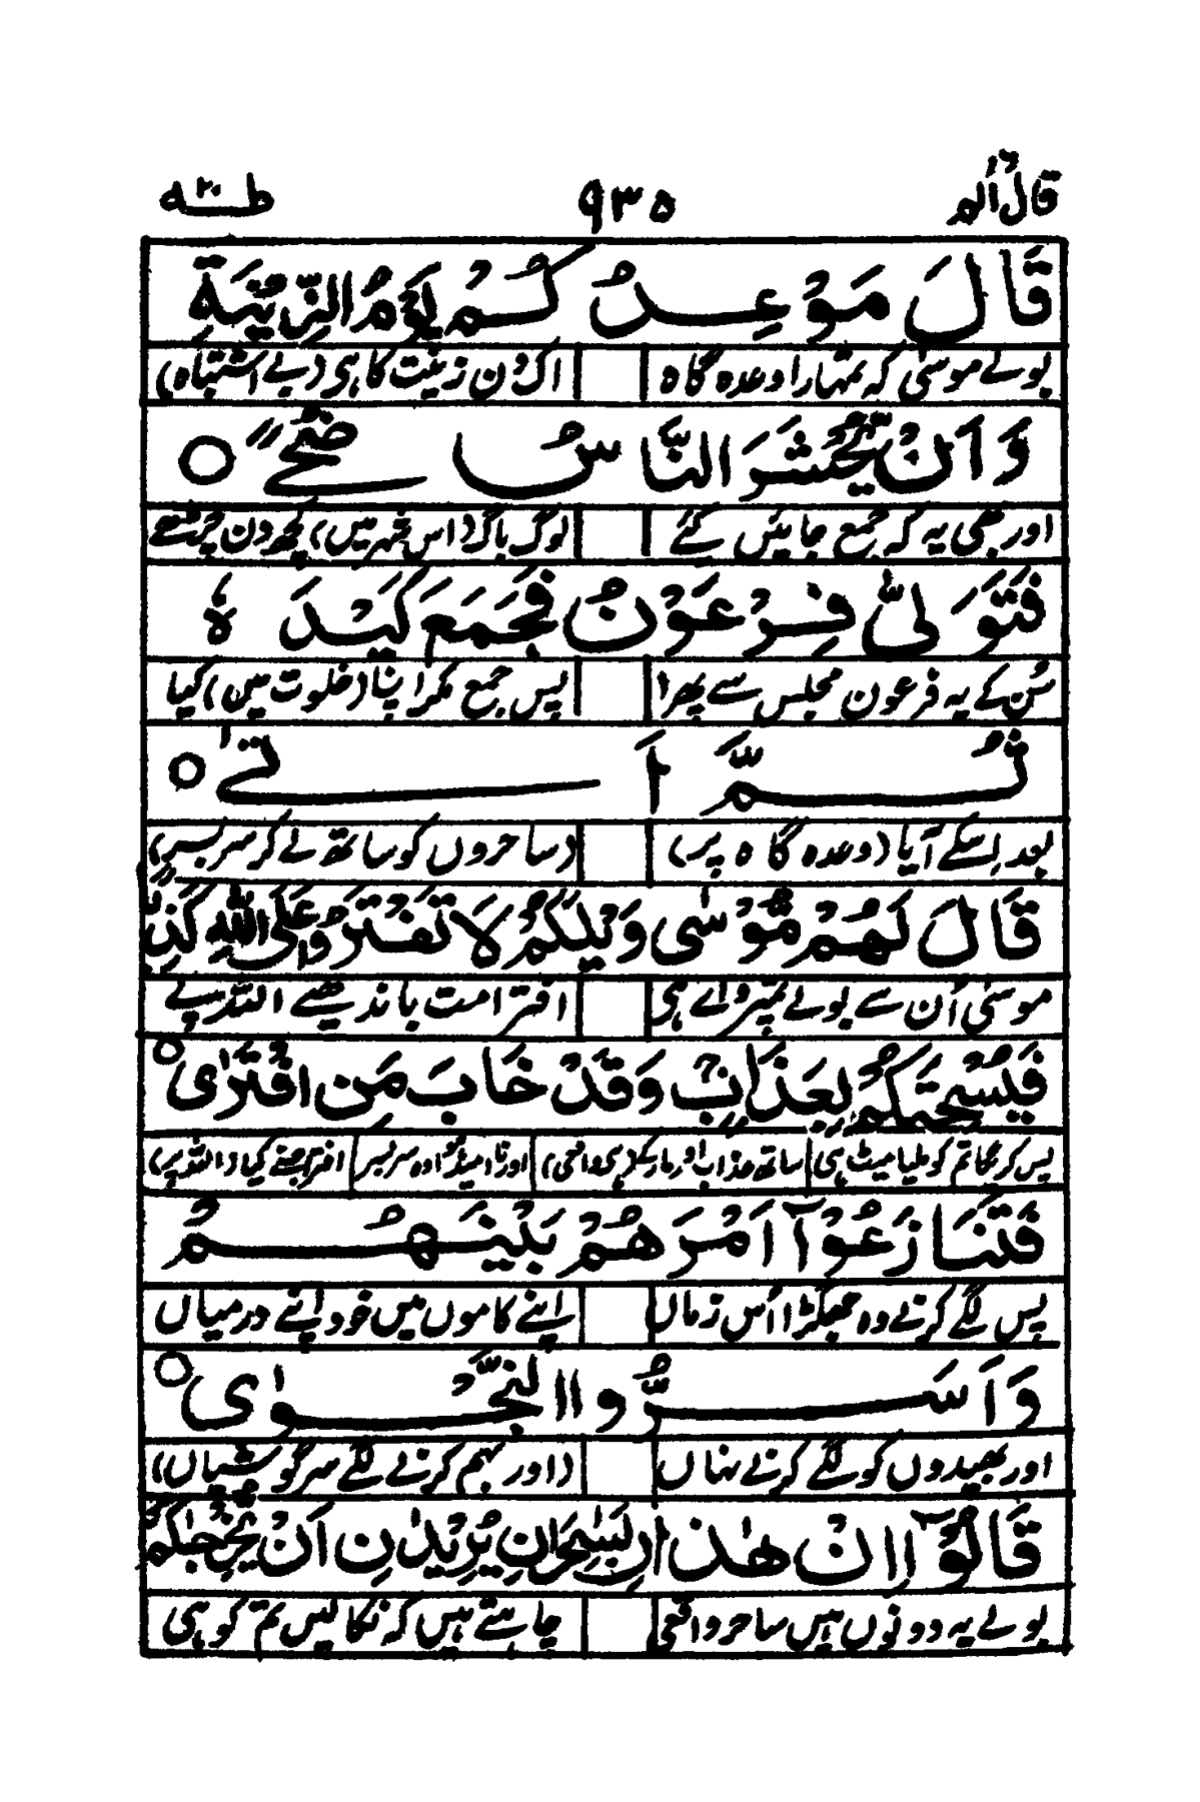 قال الم ۹۳۵ طٰہٰ ۲۰
قَالَ مَوْعِدُكُمْ يَوْمُ الزِّيْنَةِ
بولے موسٰی کہ تمہارا وعدہ گاہ اک دن زینت کا ہی (بے اشتباہ)
وَاَنْ يُّحْشَرَ النَّاسُ ضُحًى ○
اور بھی یہ کہ جمع جائیں کئے لوگ باگ (اس شہر میں) کچھ دن چڑھے
فَتَوَلّٰى فِرْعَوْنُ فَجَمَعَ كَيْدَهٗ
سُن کے یہ فرعون مجلس سے پھرا پس جمع مکر اپنا (خلوت میں) کیا
ثُمَّ اَتٰى ○
بعد اسکے آیا (وعدہ گاہ پر) (ساحروں کو ساتھ لے کر سربسر)
قَالَ لَهُمْ مُّوْسٰى وَيْلَكُمْ لَا تَفْتَرُوْا عَلَى اللّٰهِ كَذِبًا
موسٰی اُن سے بولے تمپر وائے ہی افترا مت باندھئے اللہ پے
فَيُسْحِتَكُمْ بِعَذَابٍ وَقَدْ خَابَ مَنِ افْتَرٰى ○
پس کریگا تم کو ملیا میٹ ہی ساتھ عذاب اور مار کے (ہی واقعی) اور نا امید ہُوا وہ سربسر افترا جسنے کیا (اللہ پر)
فَتَنَازَعُوْٓا اَمْرَهُمْ بَيْنَهُمْ
پس لگے کرنے وہ جھگڑا اُس زماں اپنے کاموں میں خود اپنے درمیاں
وَاَسَرُّوا النَّجْوٰى ○
اور بھیدوں کو لگے کرنے نہاں (اور بہم کرنے لگے سرگوشیاں)
قَالُوْٓا اِنْ هٰذٰنِ لَسٰحِرٰنِ يُرِيْدٰنِ اَنْ يُّخْرِجٰكُمْ
بولے یہ دونوں ہیں ساحر واقعی چاہتے ہیں کہ نکالیں تم کو ہی